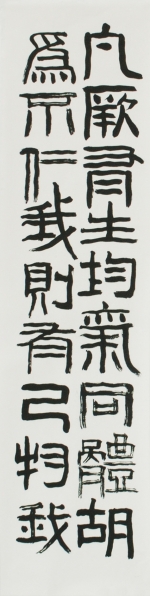 凡厥有生均氣同體胡
為不仁我則有己物我